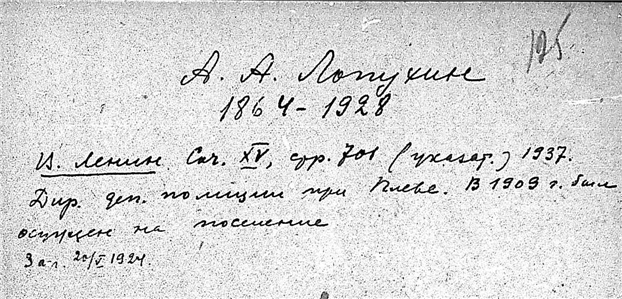 125
А. А. Лопухин
1864-1928
И. Ленин. Соч. XV, стр. 701 (указат.) 1937.
Дир. деп. полиции при Плеве. В 1909 г. был
осужден на поселение
20/V 1924.